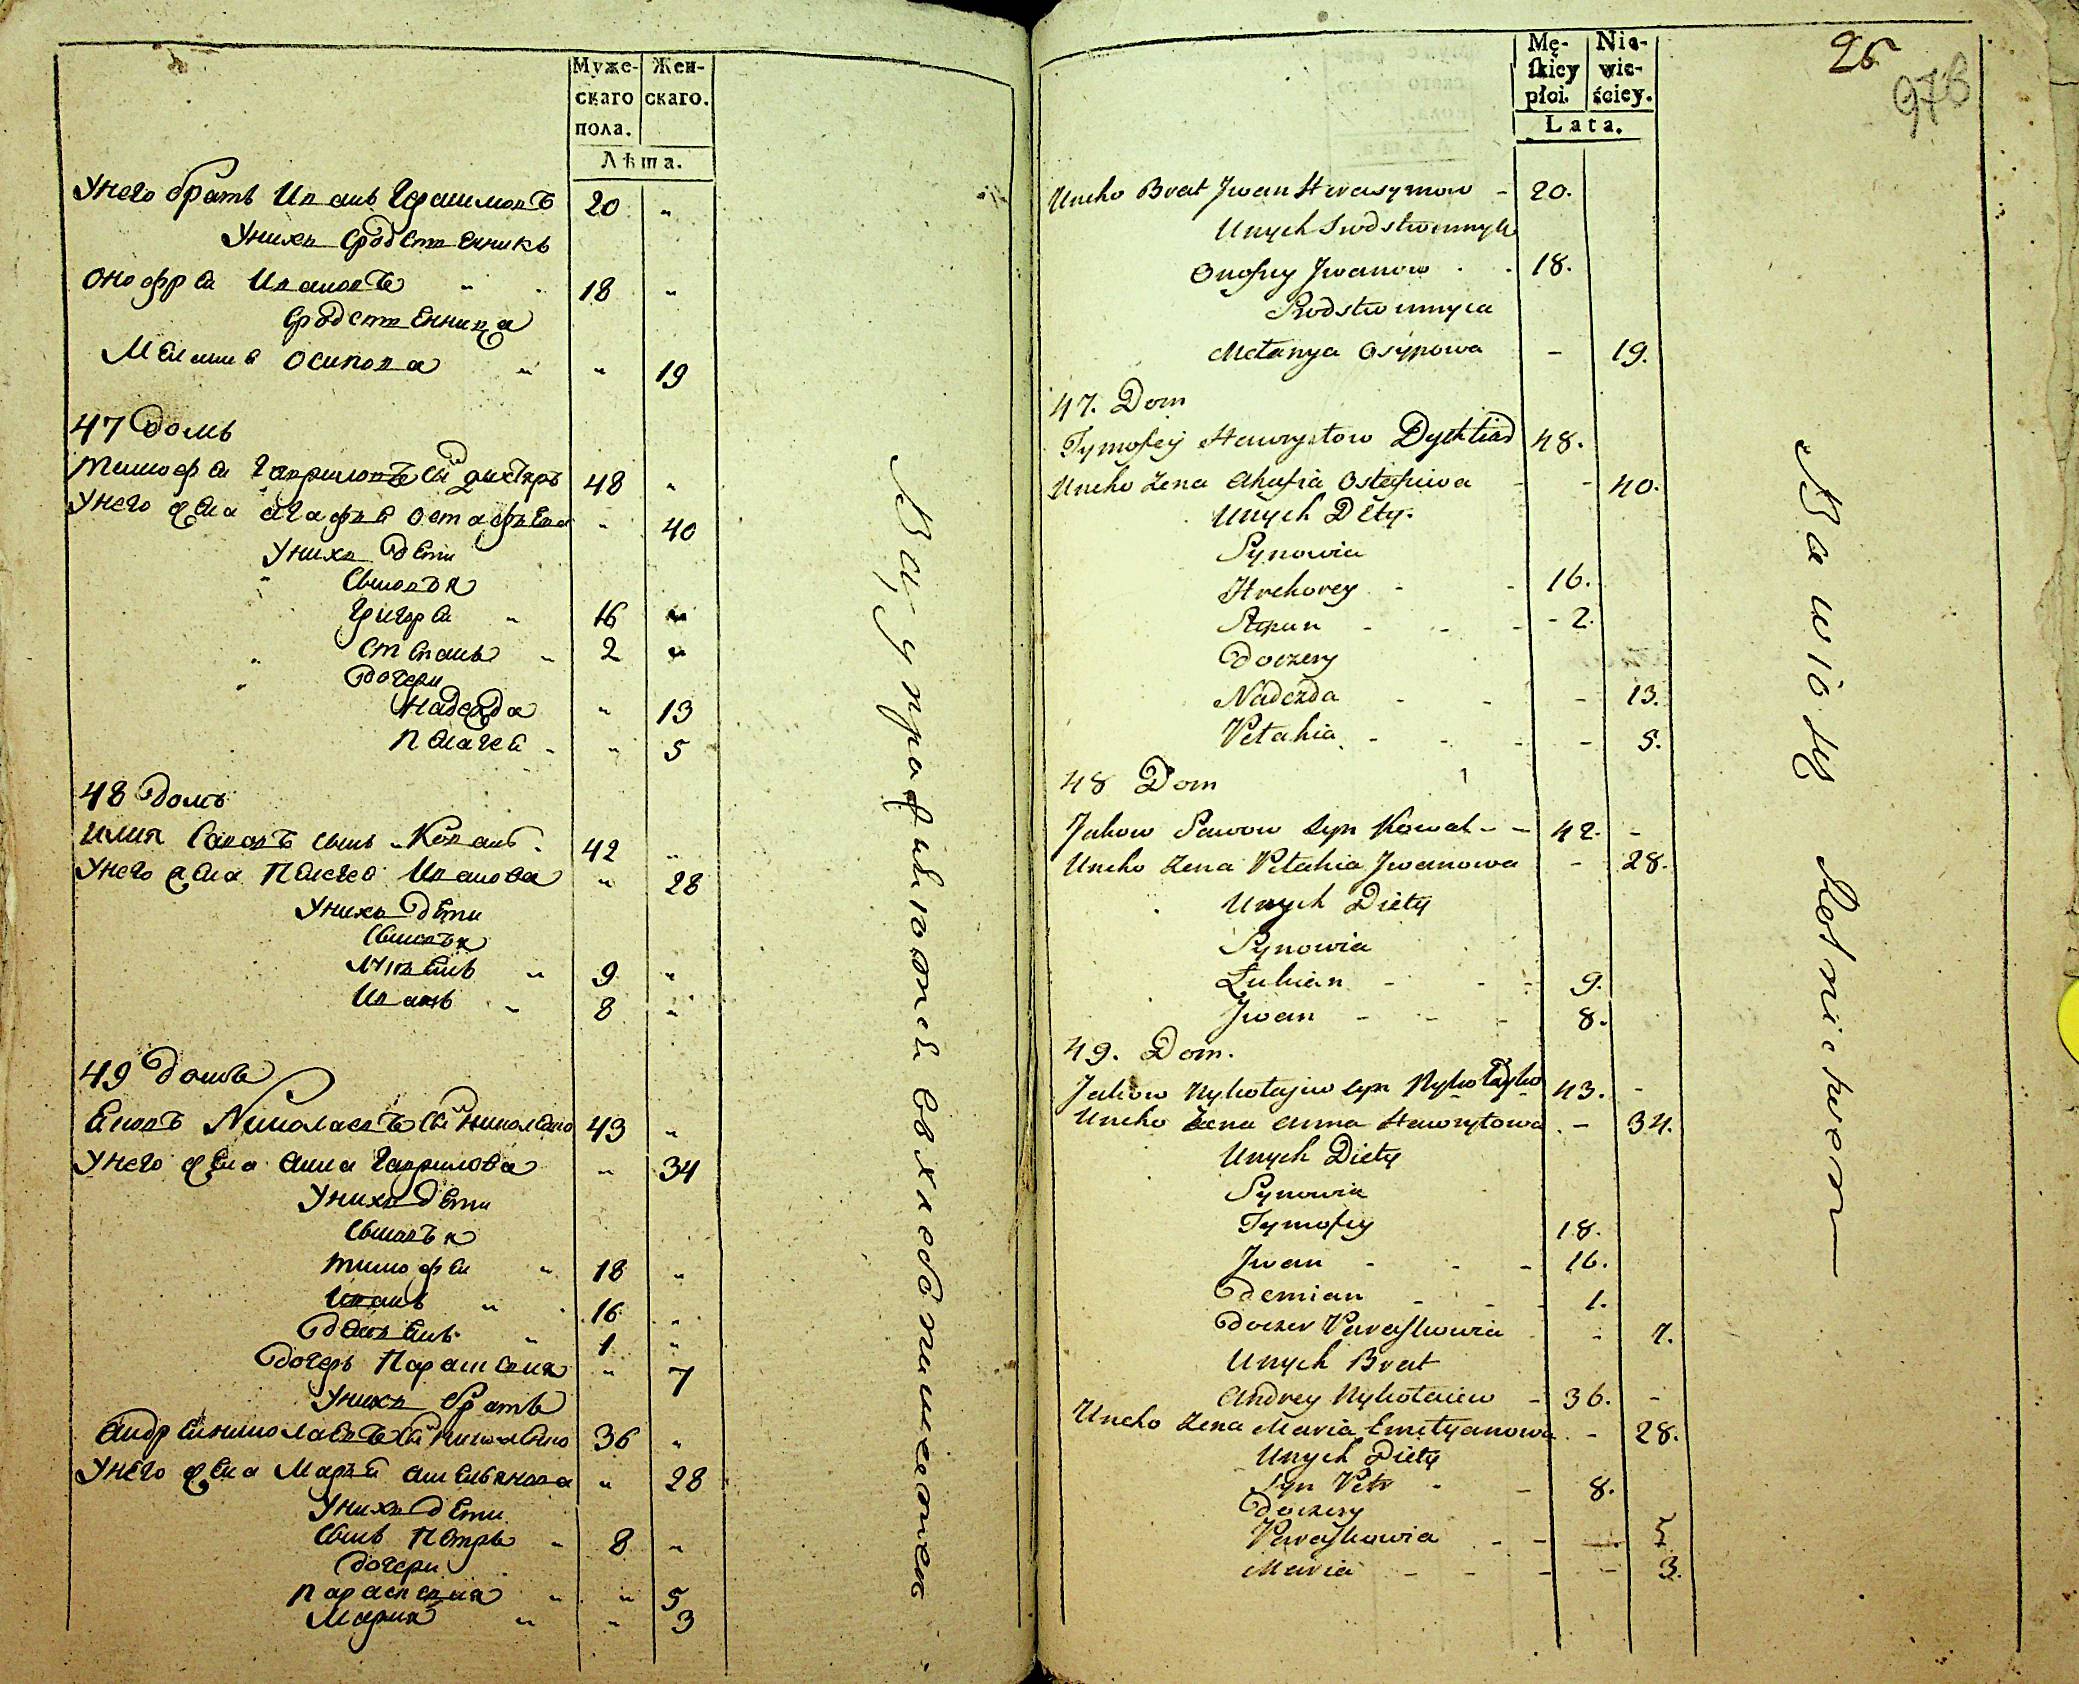 Муже-
скаго
пола.
Жен-
скаго.
Лѣта.
У него братъ Иванъ Герасимовъ 20 „
У нихъ сродственикъ
Онофрей Ивановъ „ 18 „
Сродственица
Меланія Осипова „ „ 19
47 домъ
Тимофей Гавриловъ сынъ Дихтяръ 48 „
У него жена Агафія Остафіева „ 40
У нихъ дети
Сыновья
Григорей „ 16 „
Степанъ „ 2 „
дочери
Надежда „ 13
Пелагея „ „ 5
48 домъ
Савовъ сынъ Коваль 42 „
У него жена Пелагея Иванова „ 28
У нихъ дети
Сыновья
Лукіянъ „ 9 „
Иванъ „ 8 „
49 домъ
Николаевъ сынъ 43 „
У него жена Анна Гаврилова „ 34
У нихъ дети
Сыновья
Тимофей „ 18 „
Иванъ „ 16 „
Деміянъ „ 1 „
дочерь Парасковія „ 7
У нихъ братъ
Андрей Николаевъ сынъ 36 „
У него жена Марія Емельянова „ 28
У нихъ дети
Сынъ Петръ „ 8 „
дочери
Парасковія „ „ 5
Марія „ „ 3
Mę-
skiey
płci.
Nie-
wie-
ściey.
Lata.
26
976
Uneho Brat Jwan Harasymow - 20.
Unych Srodstwennyk
Onofrey Jwanow . . 18.
Srodstwennyca
Mełanya Osypowa - 19.
47. Dom
Tymofey Hawryłow Dychtiar 48.
Uneho Zena Ahafia Ostafiewa - - 40.
Unych Dety.
Synowia
Hrehorey - - 16.
Stepan - - - 2.
Doczery
Nadezda - - - 13.
Pełahia - - - - 5.
48 Dom
Jakow Sawow syn Kowal - - 42. -
Uneho Zena Pełahia Jwanowa - 28.
Unych Diety
Synowia
Łukian - - - 9.
Jwan - - - 8.
49. Dom.
Jakow Nykołajew syn 43. -
Uneho Zena Anna Hawryłowa . - 34.
Unych Diety
Synowia
Tymofey 18.
Jwan - - - 16.
Demian - - - 1.
Doczer Paraskowia - 7.
Unych Brat
Andrey Nykołaiew - 36. -
Uneho Zena Maria Emełyanowa . - 28.
Unych Diety
Syn Petr - - 8.
Doczery
Paraskowia - - - 5
Maria - - - - - 3.